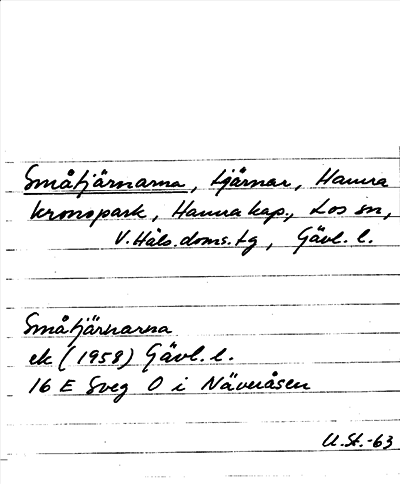 Småtjärnarna, tjärnar, Hamra
kronopark, Hamra kap., Los sn,
V. Häls. doms. tg, Gävl. l.
Småtjärnarna
ek (1958) Gävl. l.
16 E Sveg O i Näveråsen
U.St.-63